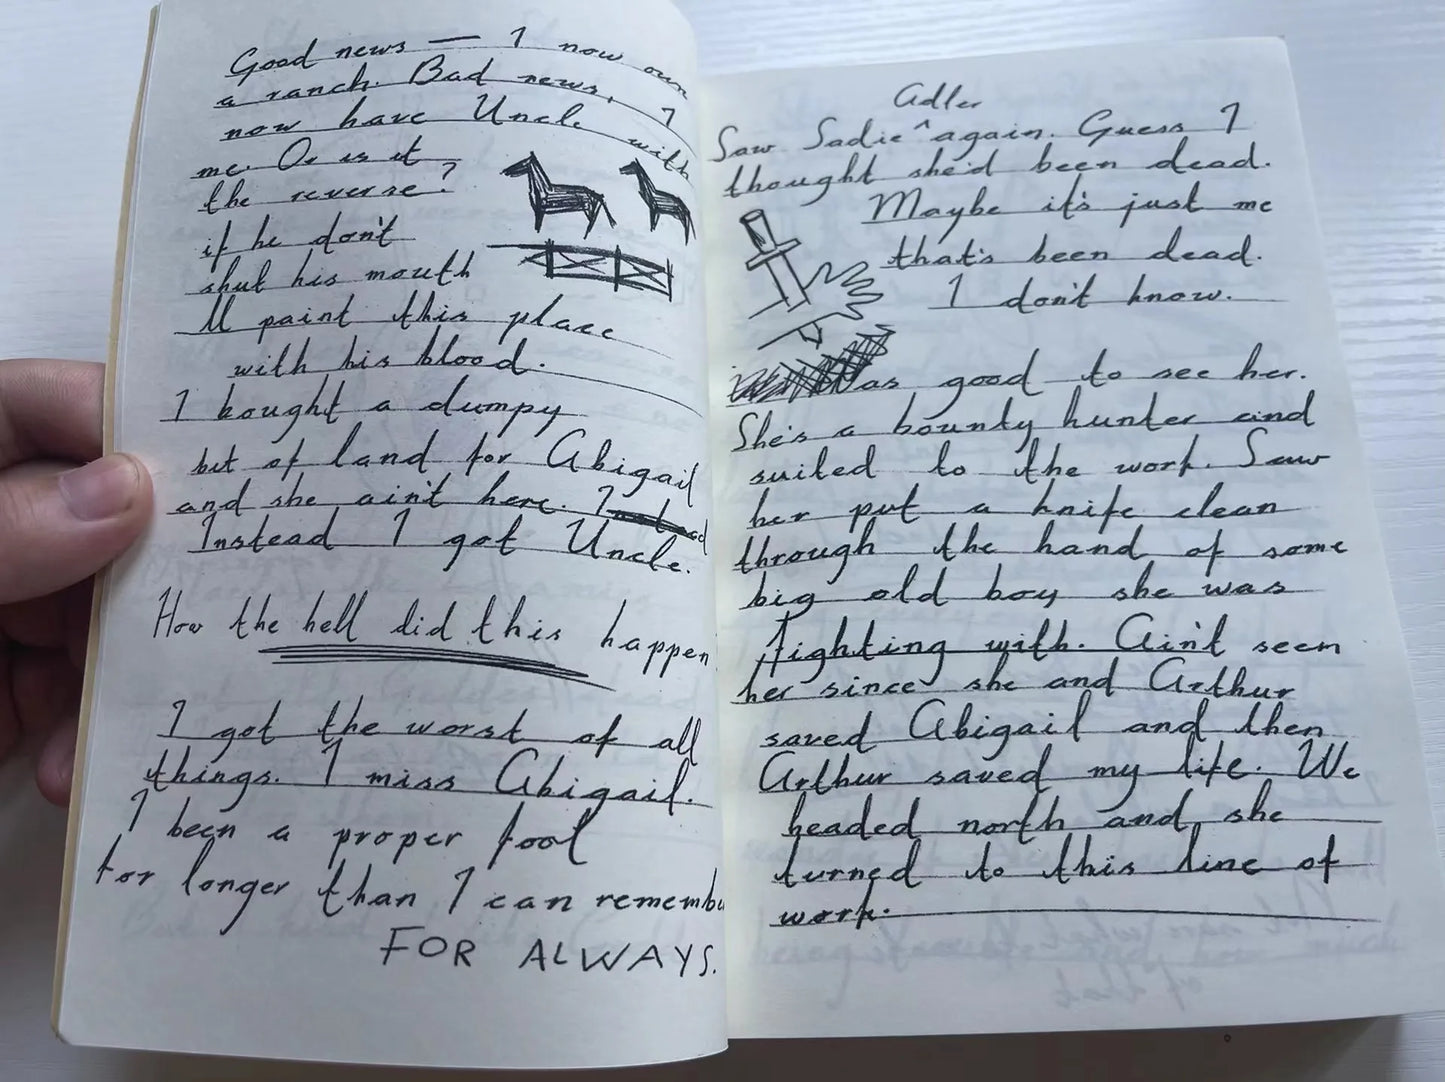 Good news — I now own
a ranch. Bad news, I
now have Uncle with
me. Or is it
the reverse?
if he don't
shut his mouth
Ill paint this place
with his blood.
I bought a dumpy
bit of land for Abigail
and she ain't here. I
Instead I got Uncle.
How the hell did this happen
I got the worst of all
things. I miss Abigail.
I been a proper fool
for longer than I can remember
FOR ALWAYS.
Adler
Saw Sadie ^ again. Guess I
thought she'd been dead.
Maybe it's just me
that's been dead.
I don't know.
Was good to see her.
She's a bounty hunter and
suited to the work. Saw
her put a knife clean
through the hand of some
big old boy she was
fighting with. Ain't seen
her since she and Arthur
saved Abigail and then
Arthur saved my life. We
headed north and she
turned to this line of
work.